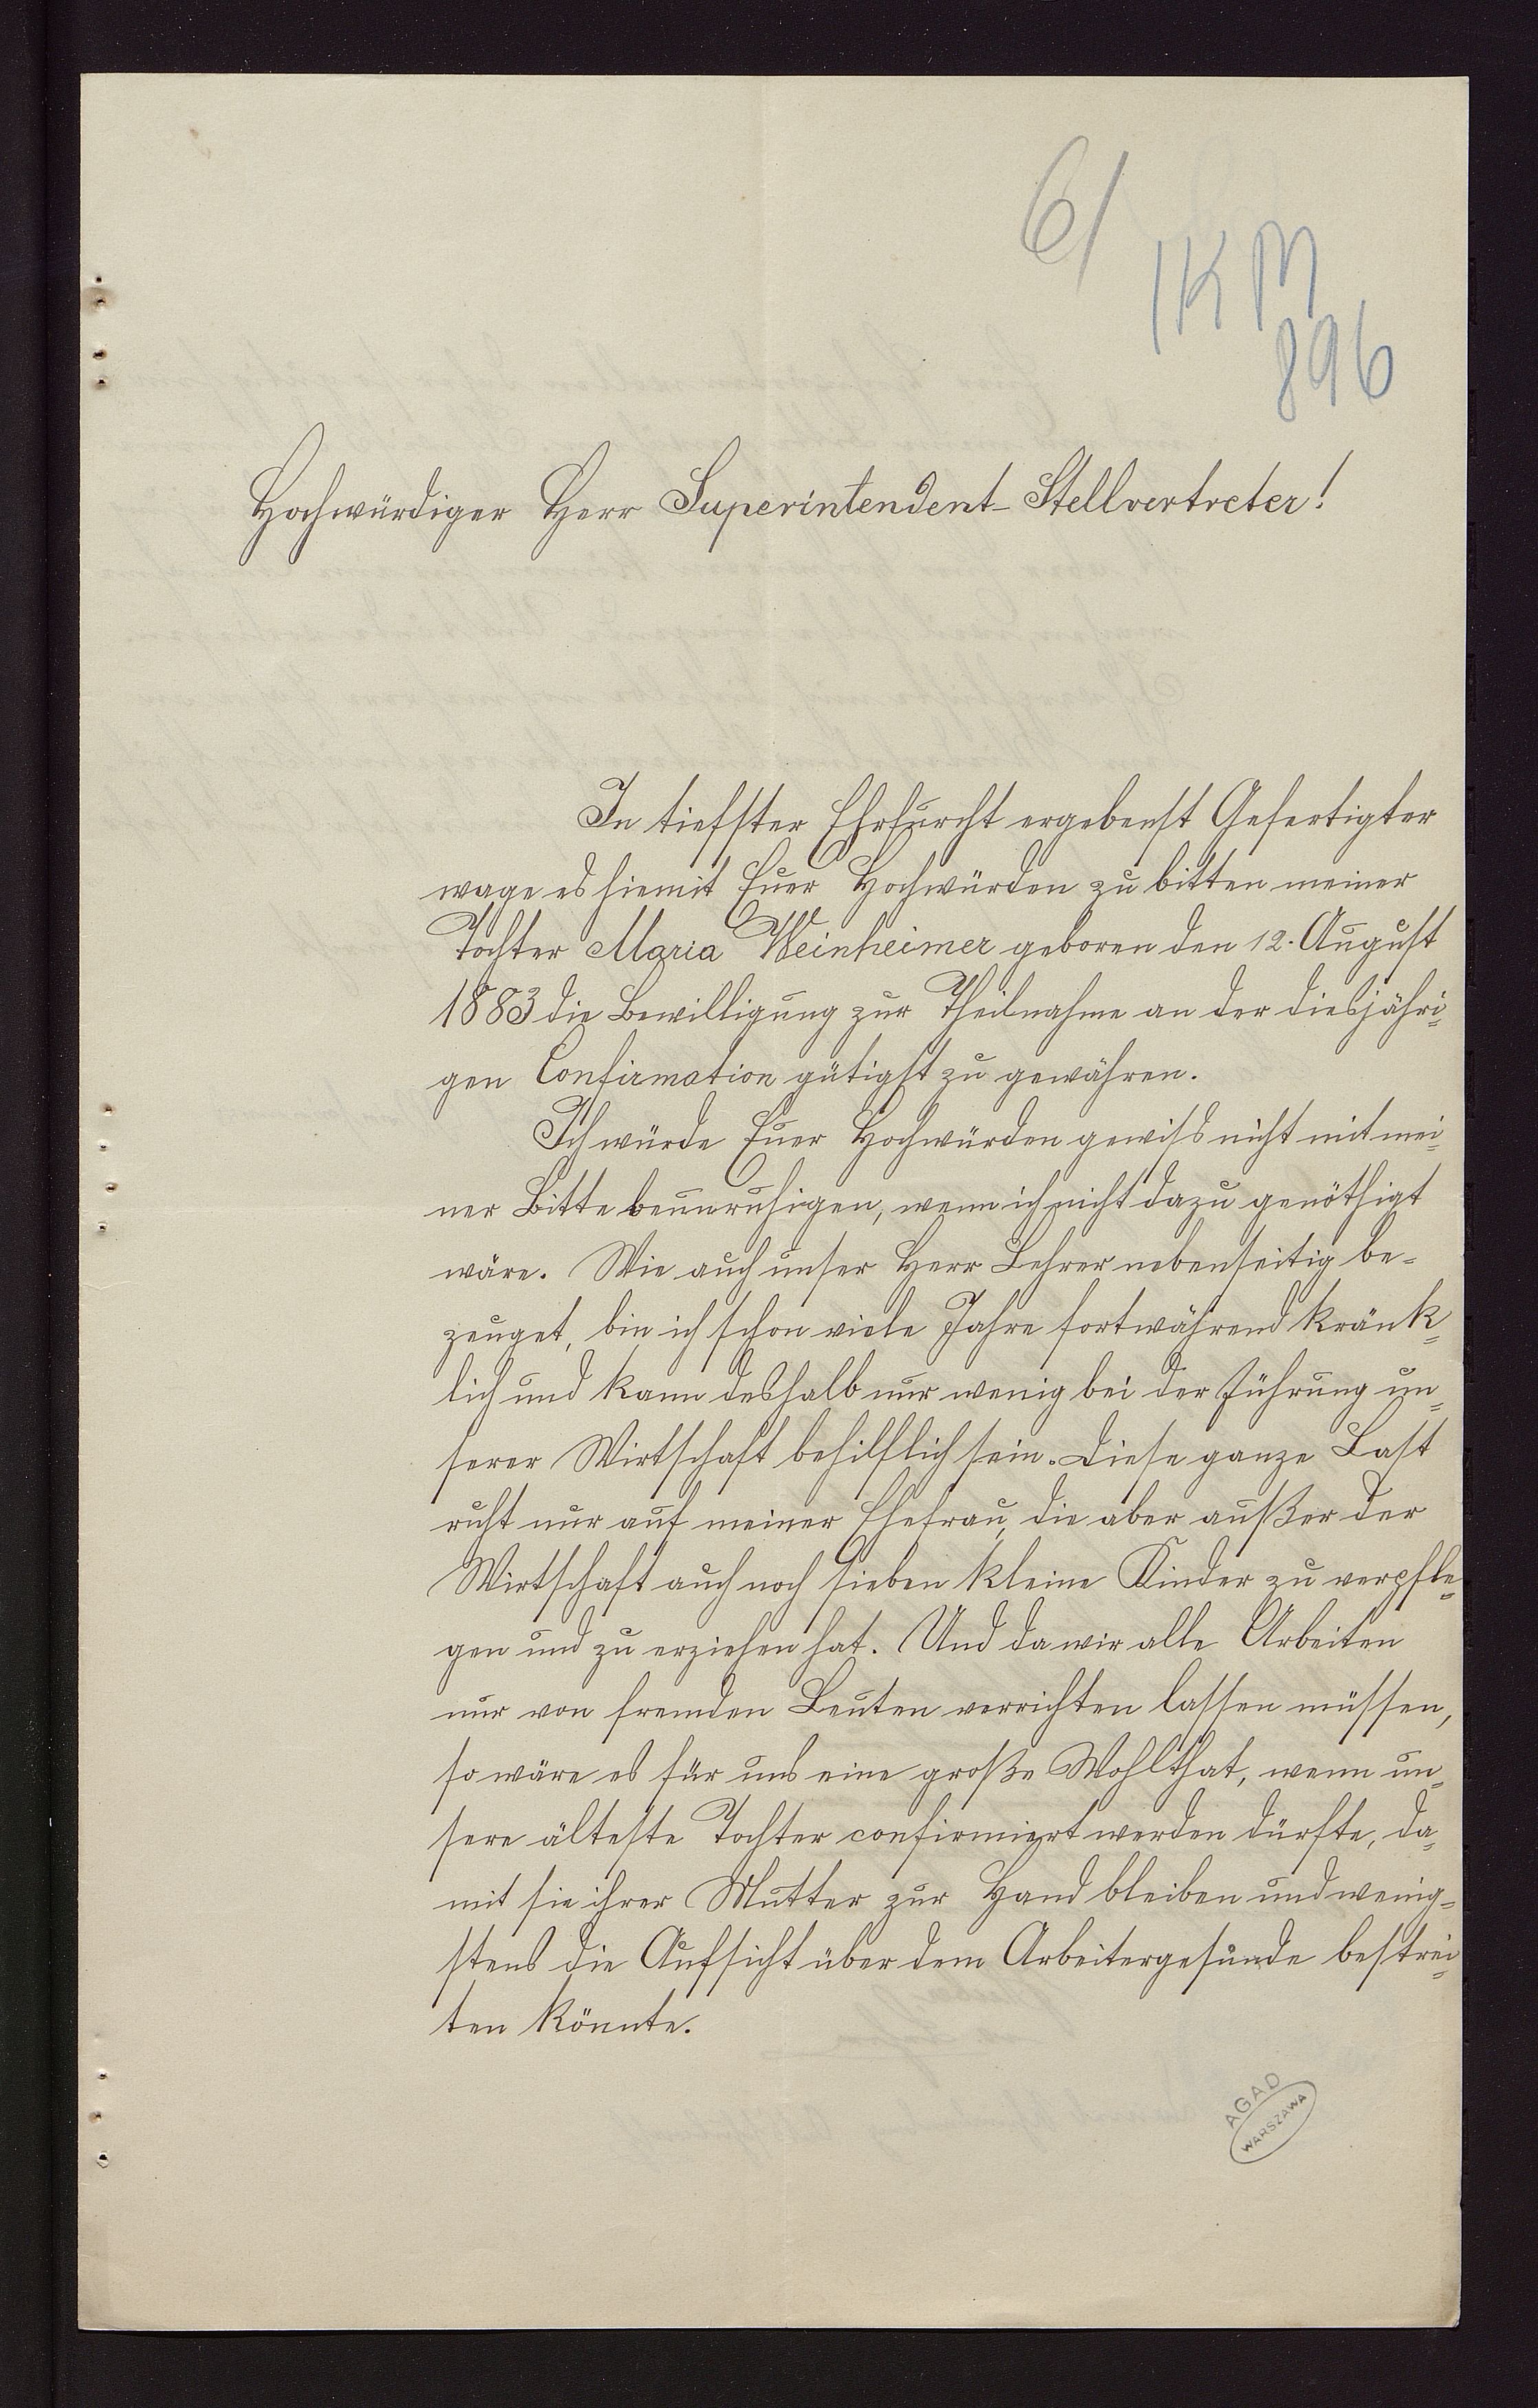 6/
1KM
896
Hochwürdiger Herr Superintendent-Stellvertreter!
In tiefster Ehrfurcht ergebenst Gefertigter
wage es hiemit Euer Hochwürden zu bitten meiner
Tochter Maria Weinheimer geboren den 12. August
1883 die Bewilligung zur Theilnahme an der diesjähri-
gen Confirmation gütigst zu gewähren.
Ich würde Euer Hochwürden gewiss nicht mit mei-
ner Bitte beunruhigen, wenn ich nicht dazu genöthigt
wäre. Wie auch unser Herr Lehrer nebenseitig be-
zeuget, bin ich schon viele Jahre fortwährend kränk-
lich und kann deshalb nur wenig bei der Führung un-
serer Wirtschaft behilflich sein. Diese ganze Last
ruht nur auf meiner Ehefrau, die aber außer der
Wirtschaft auch noch sieben kleine Kinder zu verpfle-
gen und zu erziehen hat. Und da wir alle Arbeiten
nur von fremden Leuten verrichten lassen müssen,
so wäre es für uns eine große Wohlthat, wenn un-
sere älteste Tochter confirmiert werden dürfte, da-
mit sie ihrer Mutter zur Hand bleiben und wenig-
stens die Aufsicht über dem Arbeitergesunde bestrei-
ten könnte.
AGAD
WARSZAWA